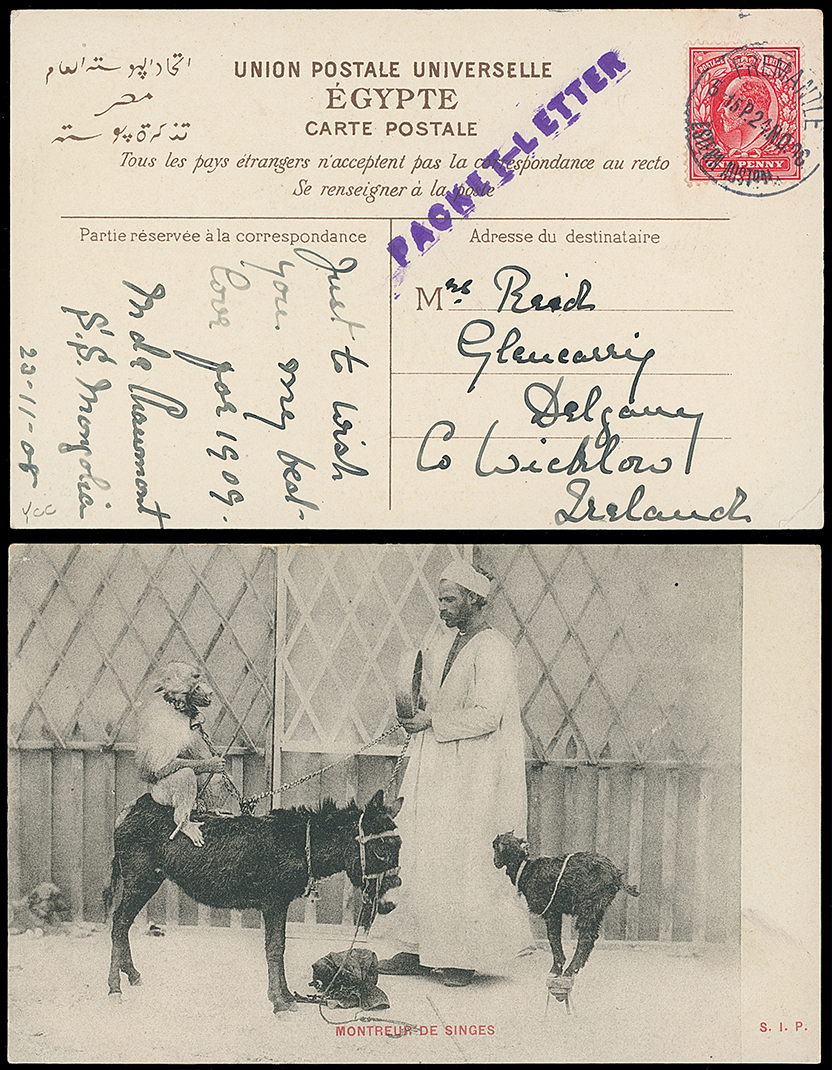 اتحاد البوسته العام
مصر
تذكرة بوسته
UNION POSTALE UNIVERSELLE
ÉGYPTE
CARTE POSTALE
Tous les pays étrangers n'acceptent pas la correspondance au recto
Se renseigner à la poste
PACKET-LETTER
POSTAGE
ONE PENNY
FREMANTLE
Partie réservée à la correspondance
Just to wish
you my best
love for 1909.
M de Chaumont
S.S. Mongolia
23-11-08
YCC
Adresse du destinataire
Mrs Reid
Glencarrig
Delgany
Co Wicklow
Ireland
MONTREUR DE SINGES
S. I. P.